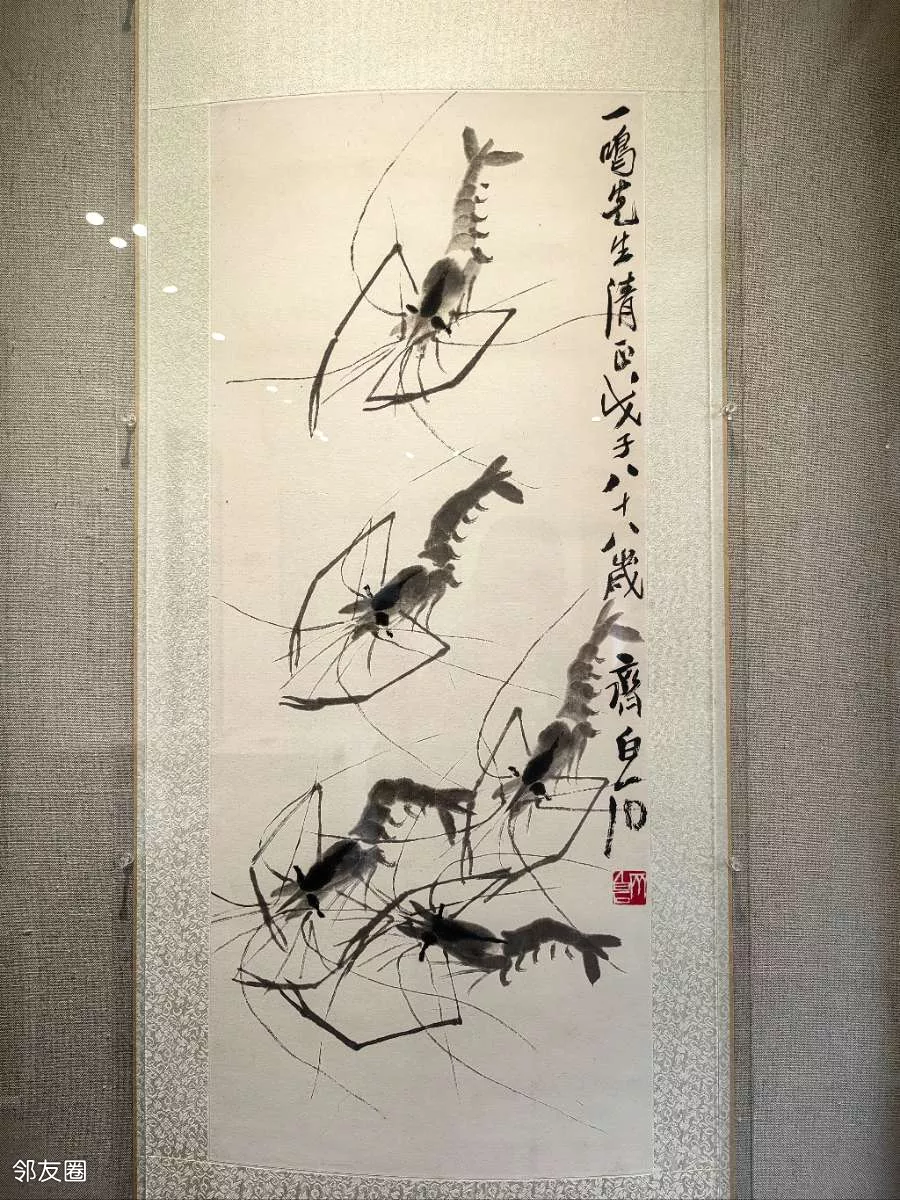 一鳴先生清正戊子八十八歲 齊白石
邻友圈